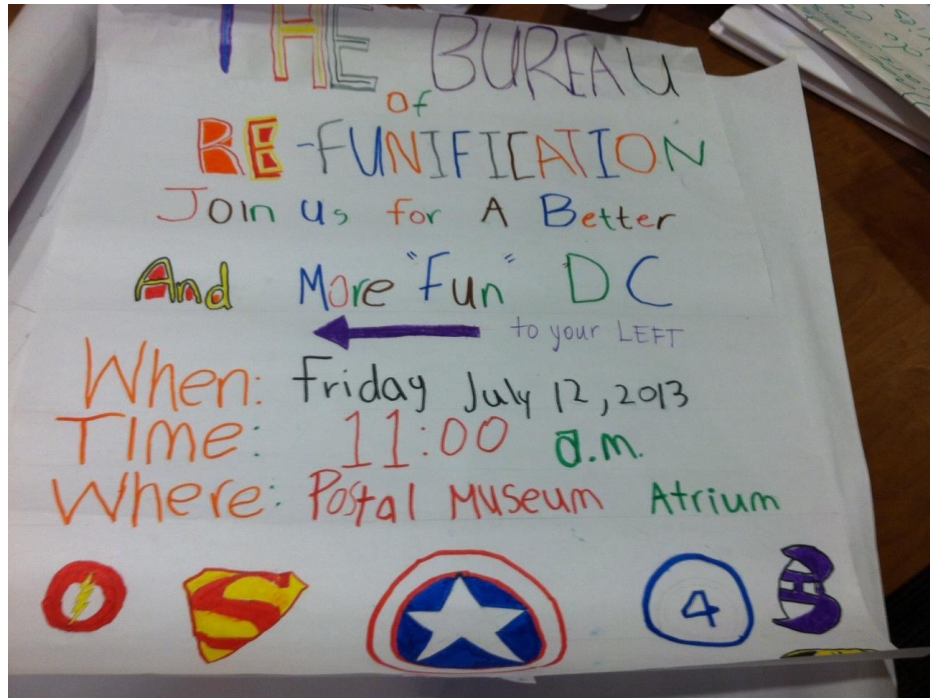 THE BUREAU
of
RE-FUNIFICATION
Join us for A Better
And More "Fun" DC
to your LEFT
When: Friday July 12, 2013
TIME: 11:00 a.m.
Where: Postal Museum Atrium
S
4
H